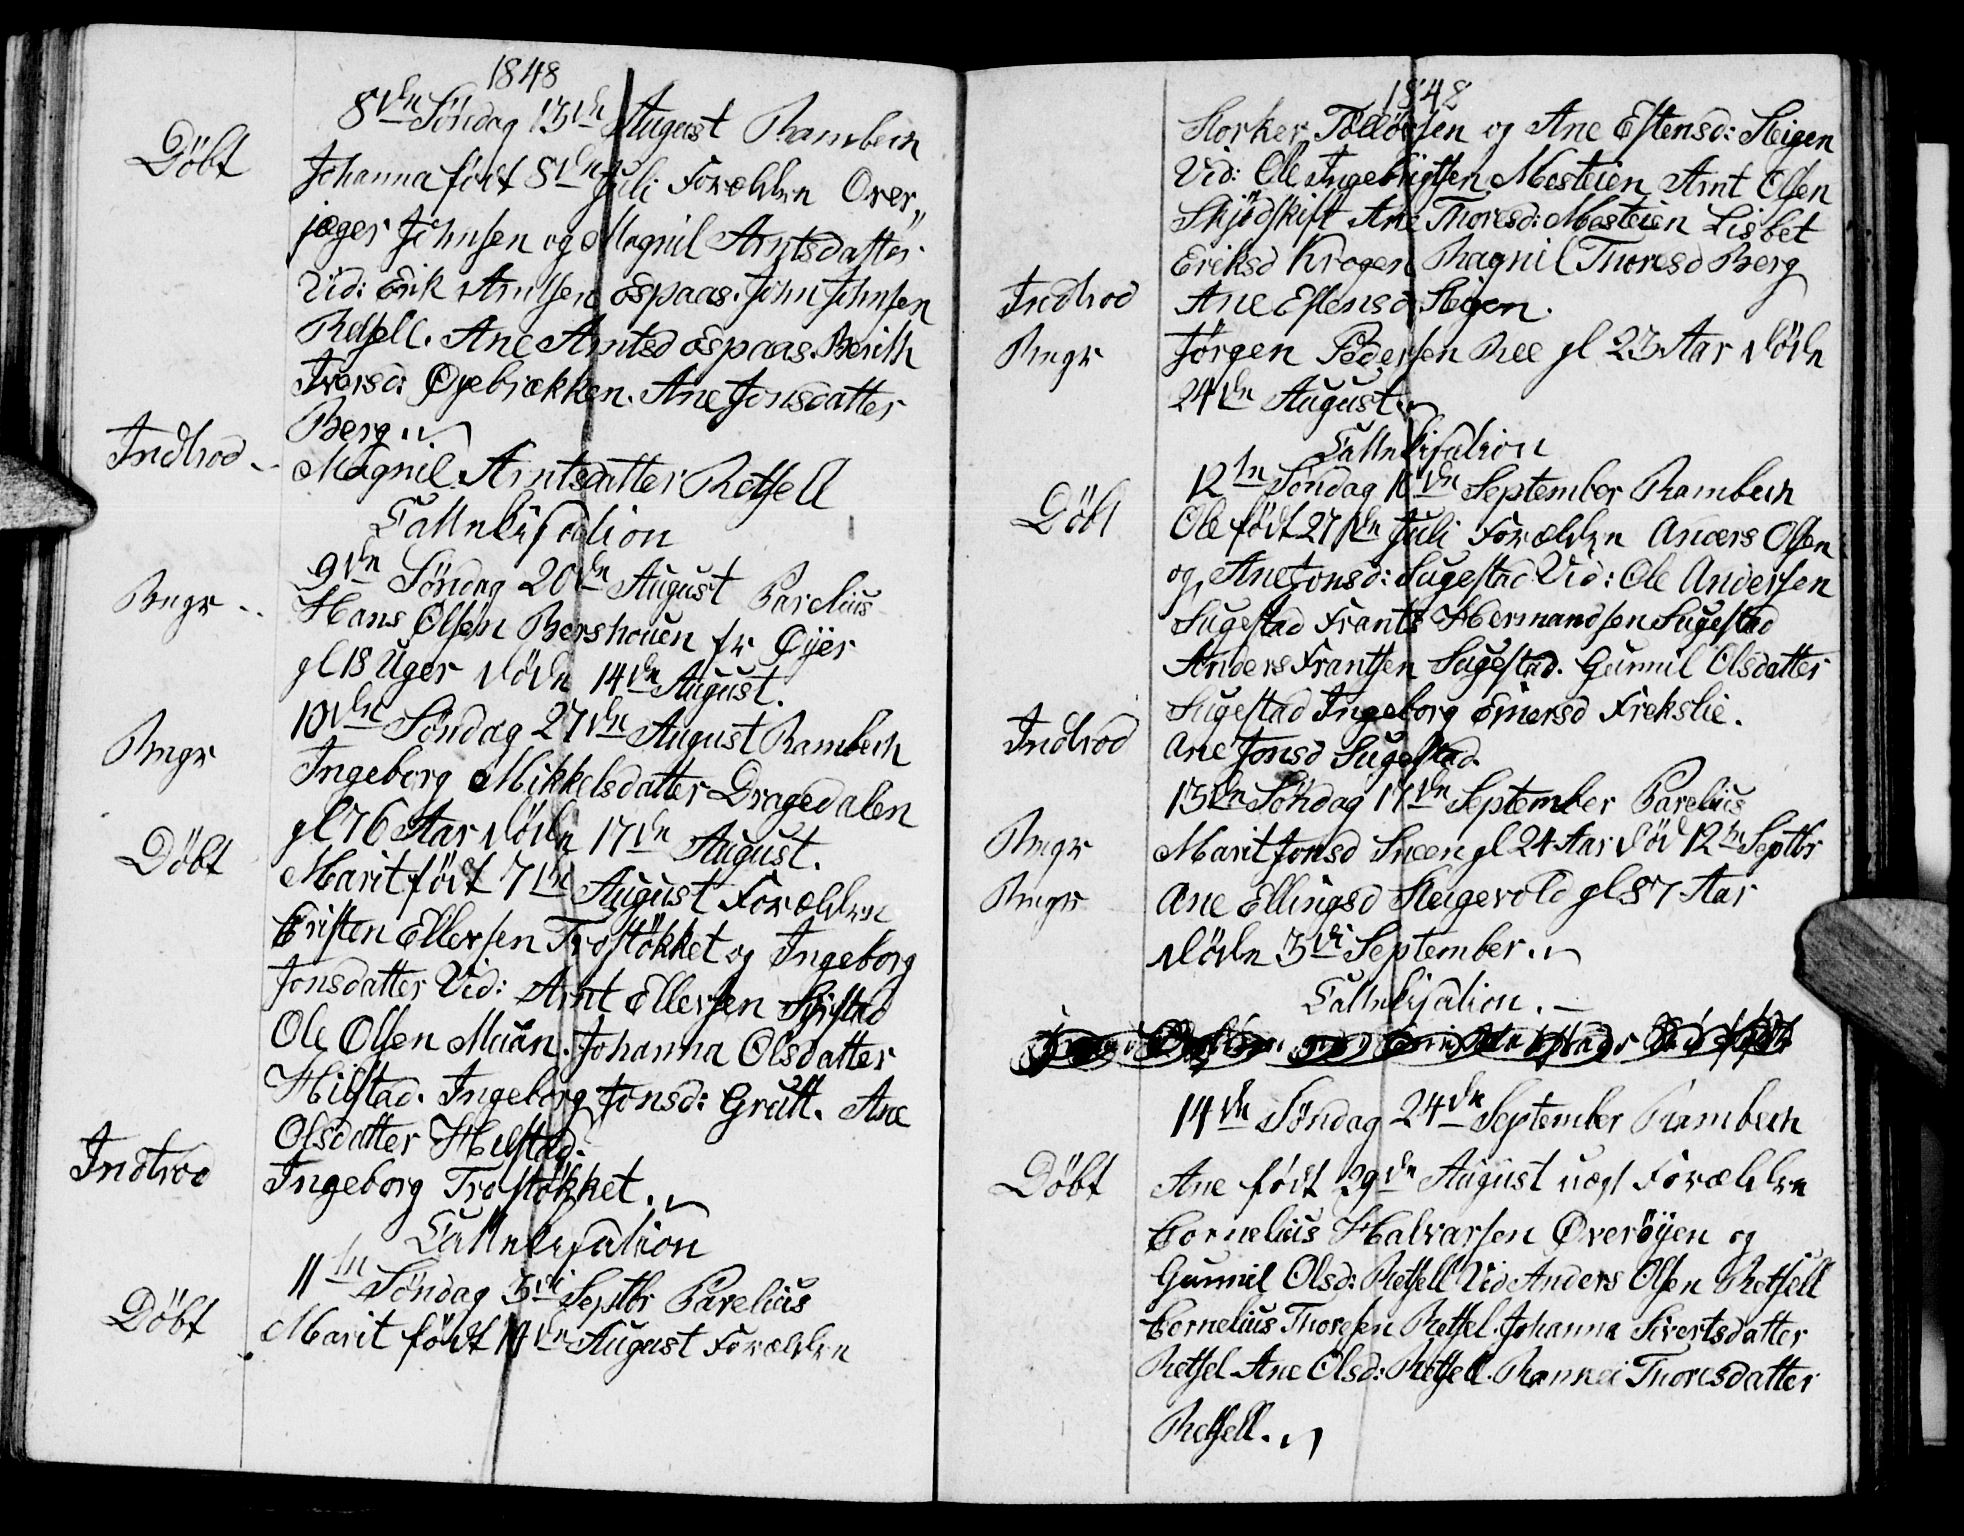 1848
8de Söndag 13de August Rambech
Döbt Johanna födt 8de Juli Forældre Over„
jæger Johnsen og Magnil Arntsdatter
Vid: Erik Arntsen Espaas. John Johnsen
Retsell. Ane Arntsd Espaas. Berith
Iversd: Öyebrækken. Ane Jonsdatter
Berg.
Indtrod Magnil Arntsdatter Retsell
Cathekisation
9de Söndag 20de August Parelius
Bngr Hans Olsen Bershouen fr Öÿer
gl 18 Uger döde 14de August.
10de Söndag 27de August Rambech
Bngr Ingeborg Mikkelsdatter Dragedalen
gl 76 Aar döde 17de August.
Döbt Marit födt 7de August Forældre
Cristen Ellersen Trostökket og Ingeborg
Jonsdatter Vid: Arnt Ellersen
Ole Olsen Muan. Johanna Olsdatter
Hilstad. Ingeborg Jonsd: Grutt. Ane
Olsdatter Hilstad.
Indtrod Ingeborg Trostökket.
Cathekisation
11te Söndag 3di Septbr Parelius
Döbt Marit födt August Forældre
1848
Storker Tollövsen og Ane Estensd: Steigen
Vid: Ole Ingebrigtsen Mesteien Arnt Olsen
Skjödskift Ane Thoresd: Mesteien Lisbet
Eriksd Krogen Magnil Thoresd Berg
Indtrod Ane Estensd Steigen.
Bngr Jörgen Pedersen Ree gl 23 Aar döde
24de August
Cathekisation
12te Söndag 10de September Rambech
Döbt Ole födt 27de Juli Forældre Anders Olsen
og Ane Jonsd: Sugestad Vid: Ole Andersen
Sugestad Frants Hermandsen Sugestad
Anders Frantsen Sugestad. Gunnil Olsdatter
Sugestad Ingeborg Einersd Frekslie.
Indtrod Ane Jonsd Sugestad.
13de Söndag 17de September Parelius
Bngr Marit Jonsd Sneen gl 24 Aar död 12te Septbr
Bngr Ane Ellingsd Steigevold gl 87 Aar
döde 3di September.
Cathekisation.
14de Söndag 24de September Rambech
Döbt Ane födt 29de August uægt Forældre
Cornelius Halvarsen Överöÿen og
Gunnil Olsd: Retsell Vid Anders Olsen Retsell
Cornelius Thoresen Retsel. Johanna Sivertsdatter
Retsel Ane Olsd: Retsell. Rannei Thoresdatter
Retsell.